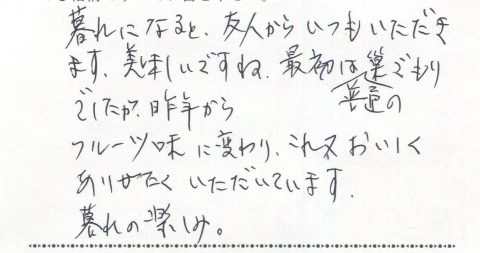 暮れになると、友人からいつもいただき
ます。美味しいですね。最初は巣ごもり
普通の
でしたが、昨年から
フルーツ味に変わり、これ又おいしく
ありがたくいただいています。
暮れの楽しみ。